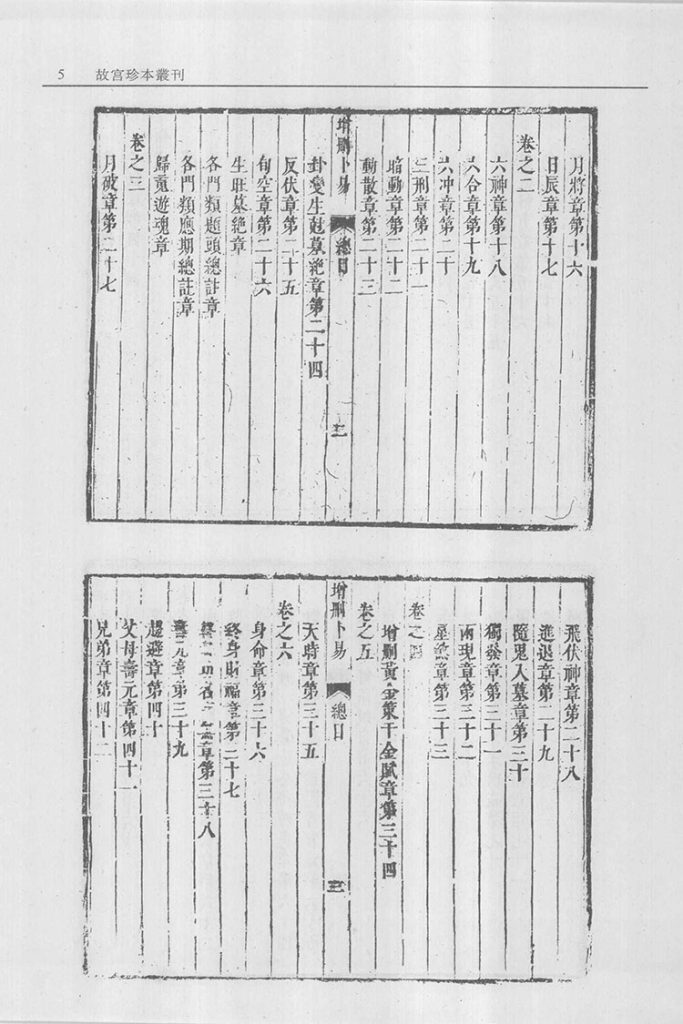 5 故宮珍本叢刊
月將章第十六
日辰章第十七
卷之二
六神章第十八
六合章第十九
六冲章第二十
三刑章第二十一
暗動章第二十二
動散章第二十三
增刪卜易 總目 二
卦變生尅墓絶章第二十四
反伏章第二十五
旬空章第二十六
生旺墓絶章
各門類題頭總註章
各門類應期總註章
歸䰟遊魂章
卷之三
月破章第二十七
飛伏神章第二十八
進退章第二十九
隨鬼入墓章第三十
獨發章第三十一
兩現章第三十二
星煞章第三十三
卷之四
增刪黃金策千金賦章第三十四
卷之五
天時章第三十五
增刪卜易 總目 三
卷之六
身命章第三十六
終身財福章第三十七
終身功名章第三十八
壽元章第三十九
趨避章第四十
父母壽元章第四十一
兄弟章第四十二